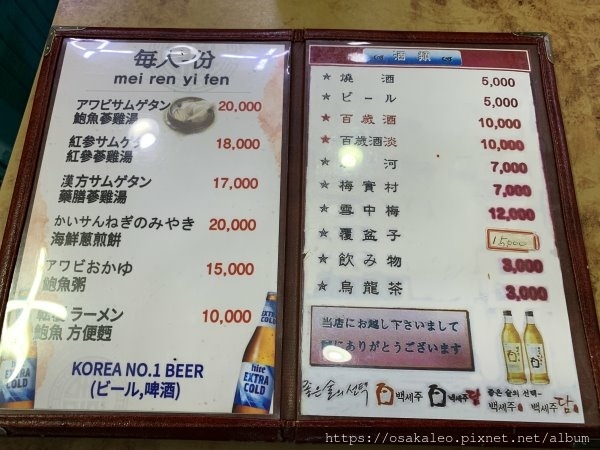 毎人一份
mei ren yi fen
アワビサムゲタン 20,000
鮑魚蔘雞湯
紅参サムゲタン 18,000
紅參蔘雞湯
漢方サムゲタン 17,000
藥膳蔘雞湯
かいサんねぎのみやき 20,000
海鮮蔥煎餅
アワビおかゆ 15,000
鮑魚粥
ラーメン 10,000
鮑魚 方便麵
KOREA NO.1 BEER
(ビール,啤酒)
hite
EXTRA
COLD
酒類
★ 燒酒 5,000
★ ビール 5,000
★ 百歲酒 10,000
★ 百歲酒淡 10,000
★ 河 7,000
★ 梅實村 7,000
★ 雪中梅 12,000
★ 覆盆子 15,000
★ 飲み物 3,000
★ 烏龍茶 3,000
当店にお越し下さいまして
にありがとうございます
좋은 술의 선택 백세주 백세주담
좋은 술의 선택-
백세주 백세주담
https://osakaleo.pixnet.net/album